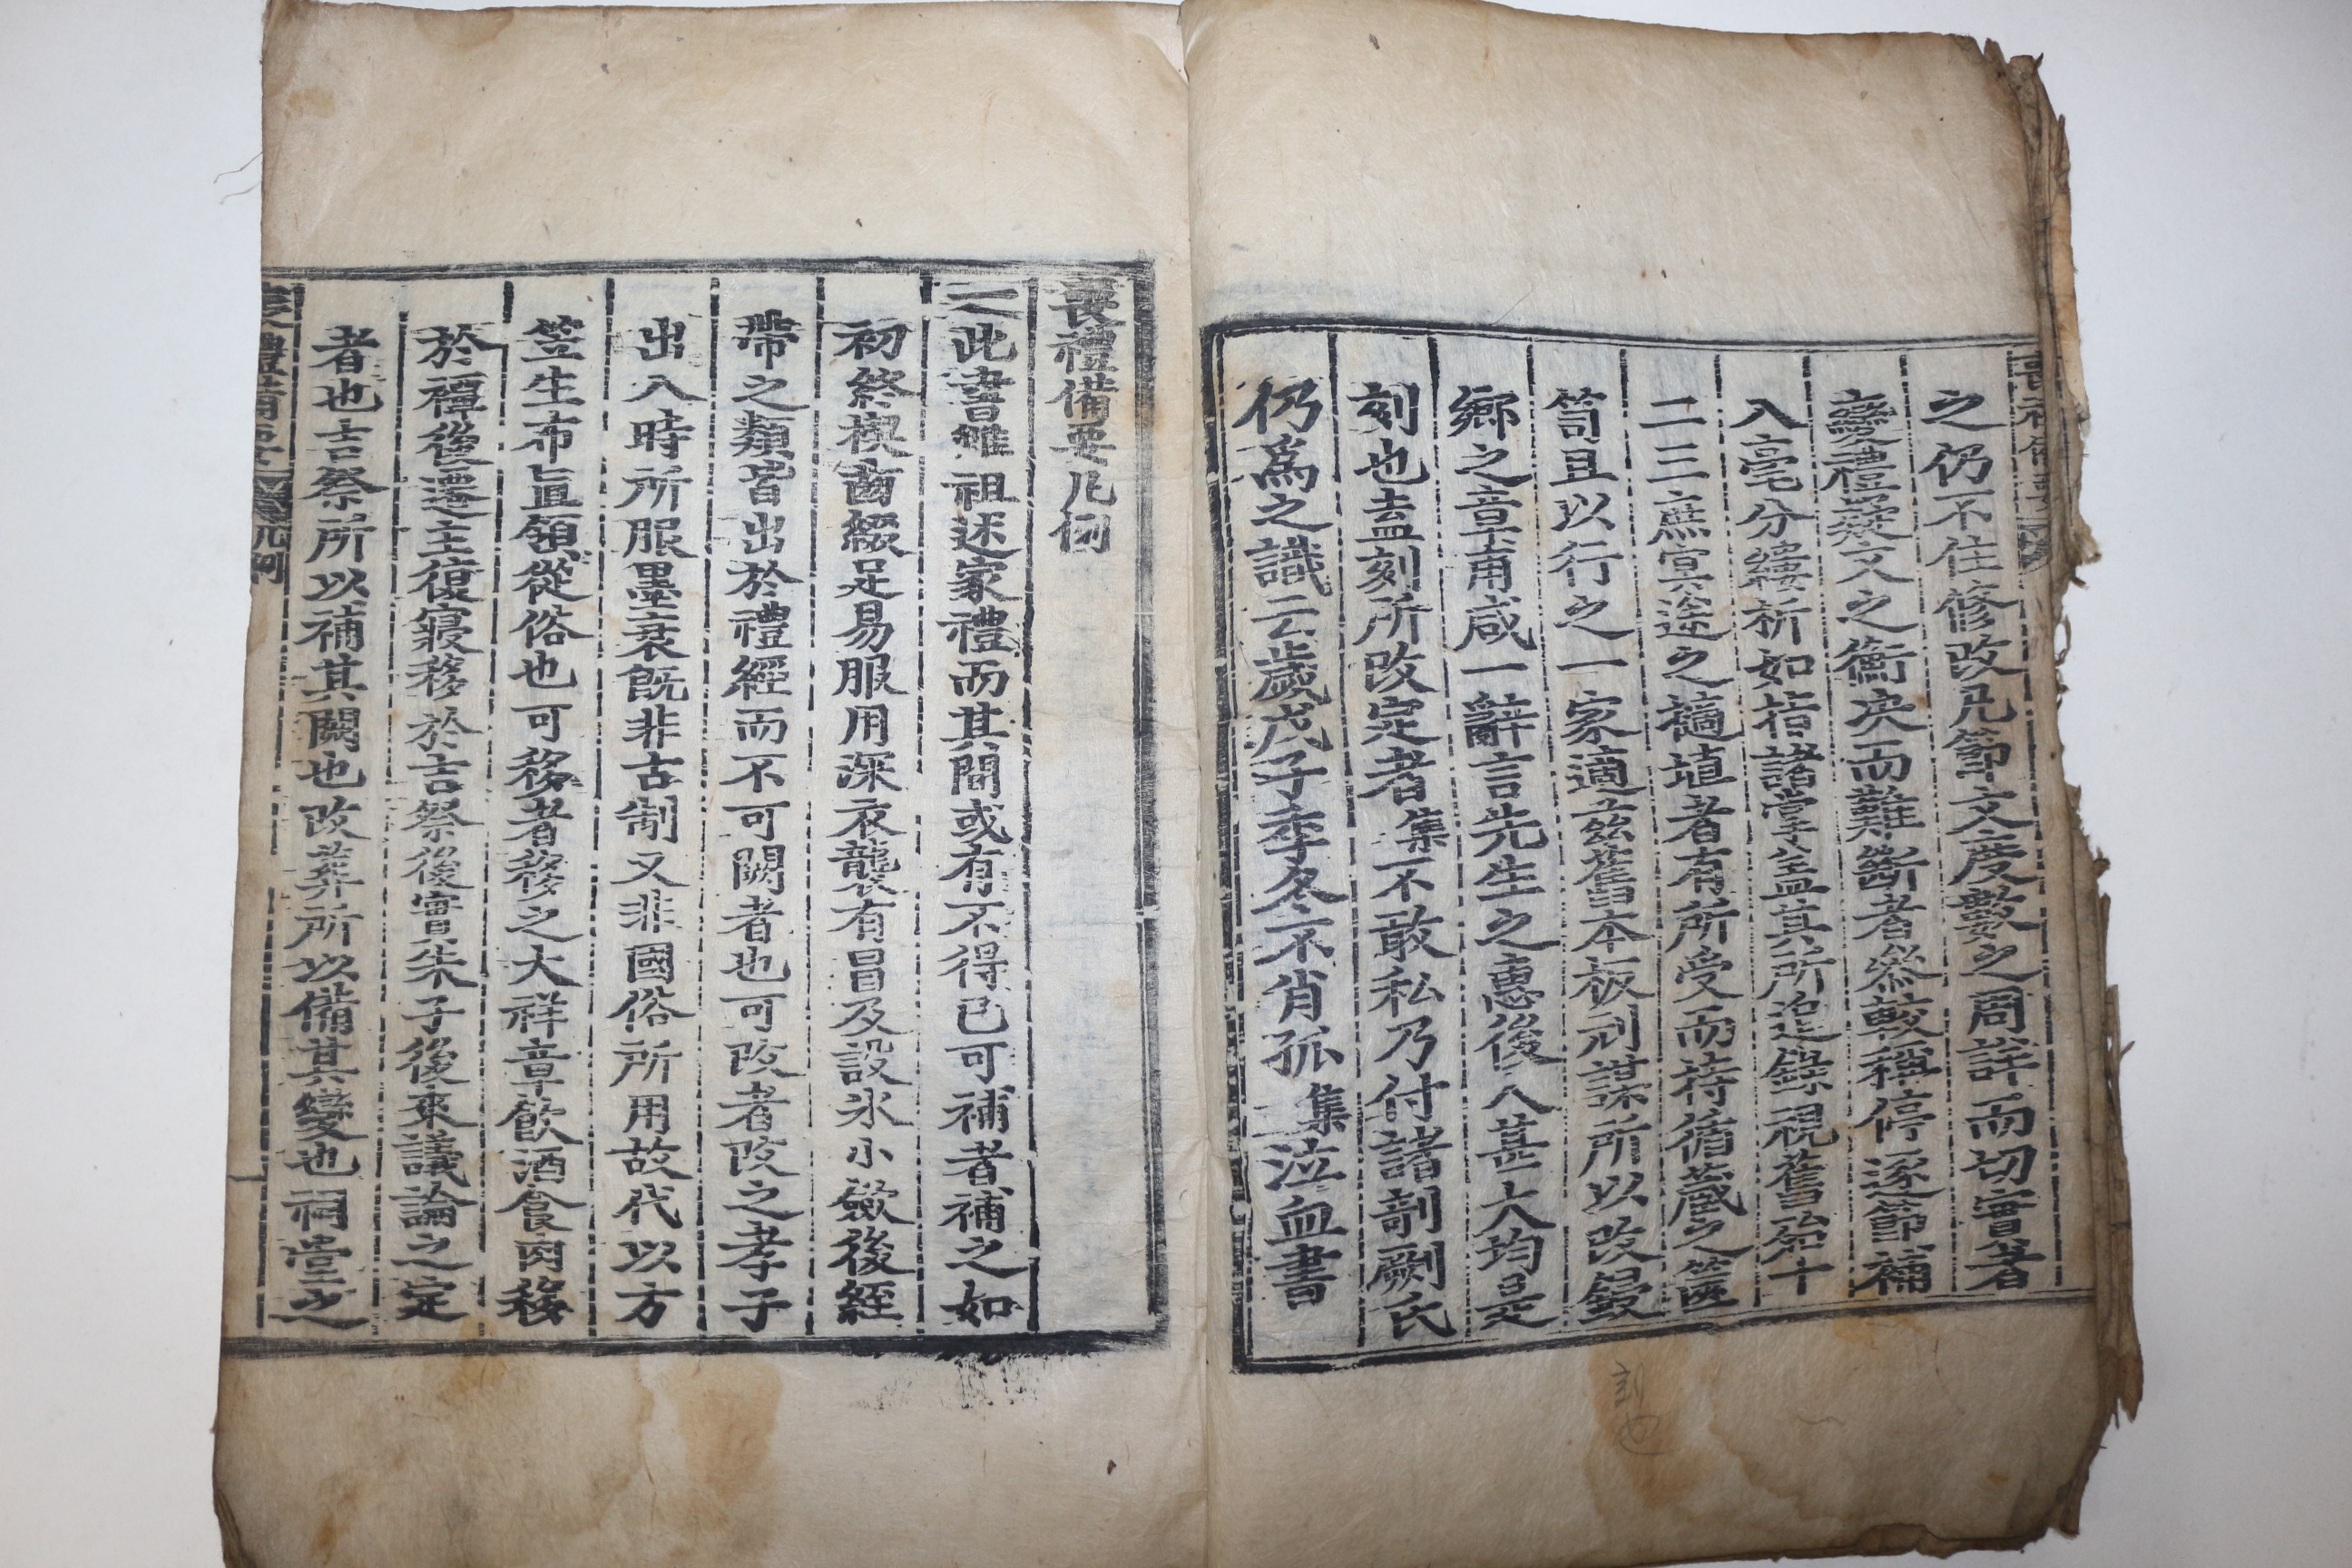 之仍不住修改凡節文度數之周詳而切實者
變禮疑文之衡決而難斷者參較稱停逐節補
入毫分縷析如指諸掌至其所追錄視舊殆十
二三庶冥途之擿埴者有所受而持循藏之篋
笥且以行之一家適玆舊本板刓謀所以改鋟
鄉之章甫咸一辭言先生之惠後人甚大均是
刻也盍刻所改定者集不敢私乃付諸剞劂氏
仍爲之識云歲戊子季冬不肖孤集泣血書
喪禮備要凡例
一此書雖祖述家禮而其間或有不得已可補者補之如
初終楔齒綴足易服用深衣襲有冒及設氷小斂後絰
帶之類皆出於禮經而不可闕者也可改者改之孝子
出入時所服墨衰旣非古制又非國俗所用故代以方
笠生布直領從俗也可移者移之大祥章飮酒食肉移
於禫後遷主復寢移於吉祭後實朱子後來議論之定
者也吉祭所以補其闕也改葬所以備其變也祠堂之
喪禮備要 凡例 一